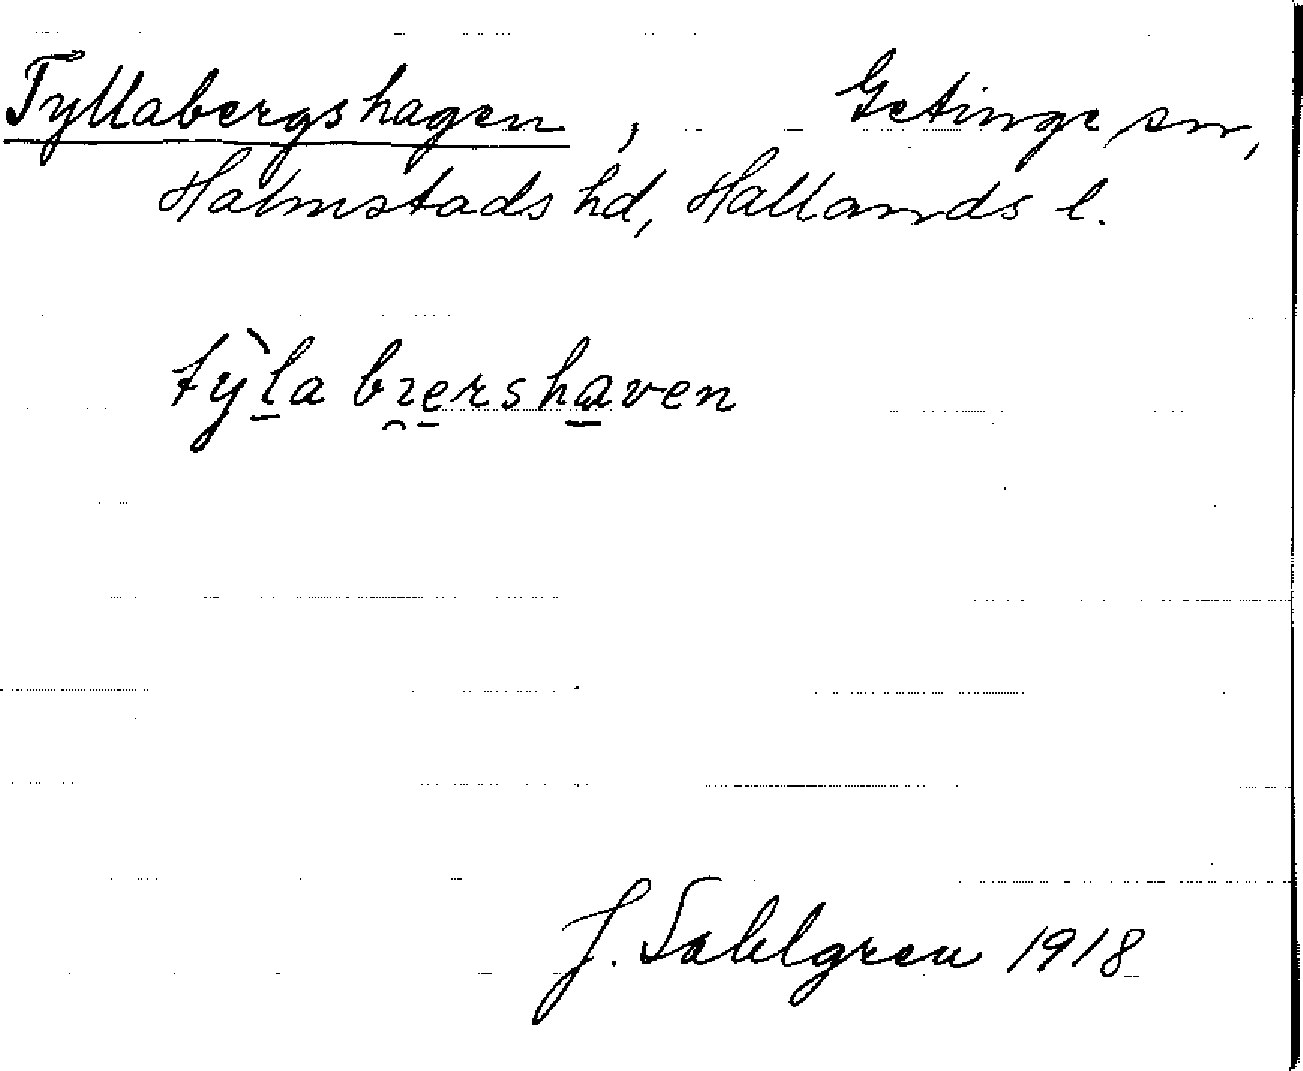 Tyllabergshagen, Getinge sn,
Halmstads hd, Hallands l.
tỳla bɿershaven
J. Sahlgren 1918